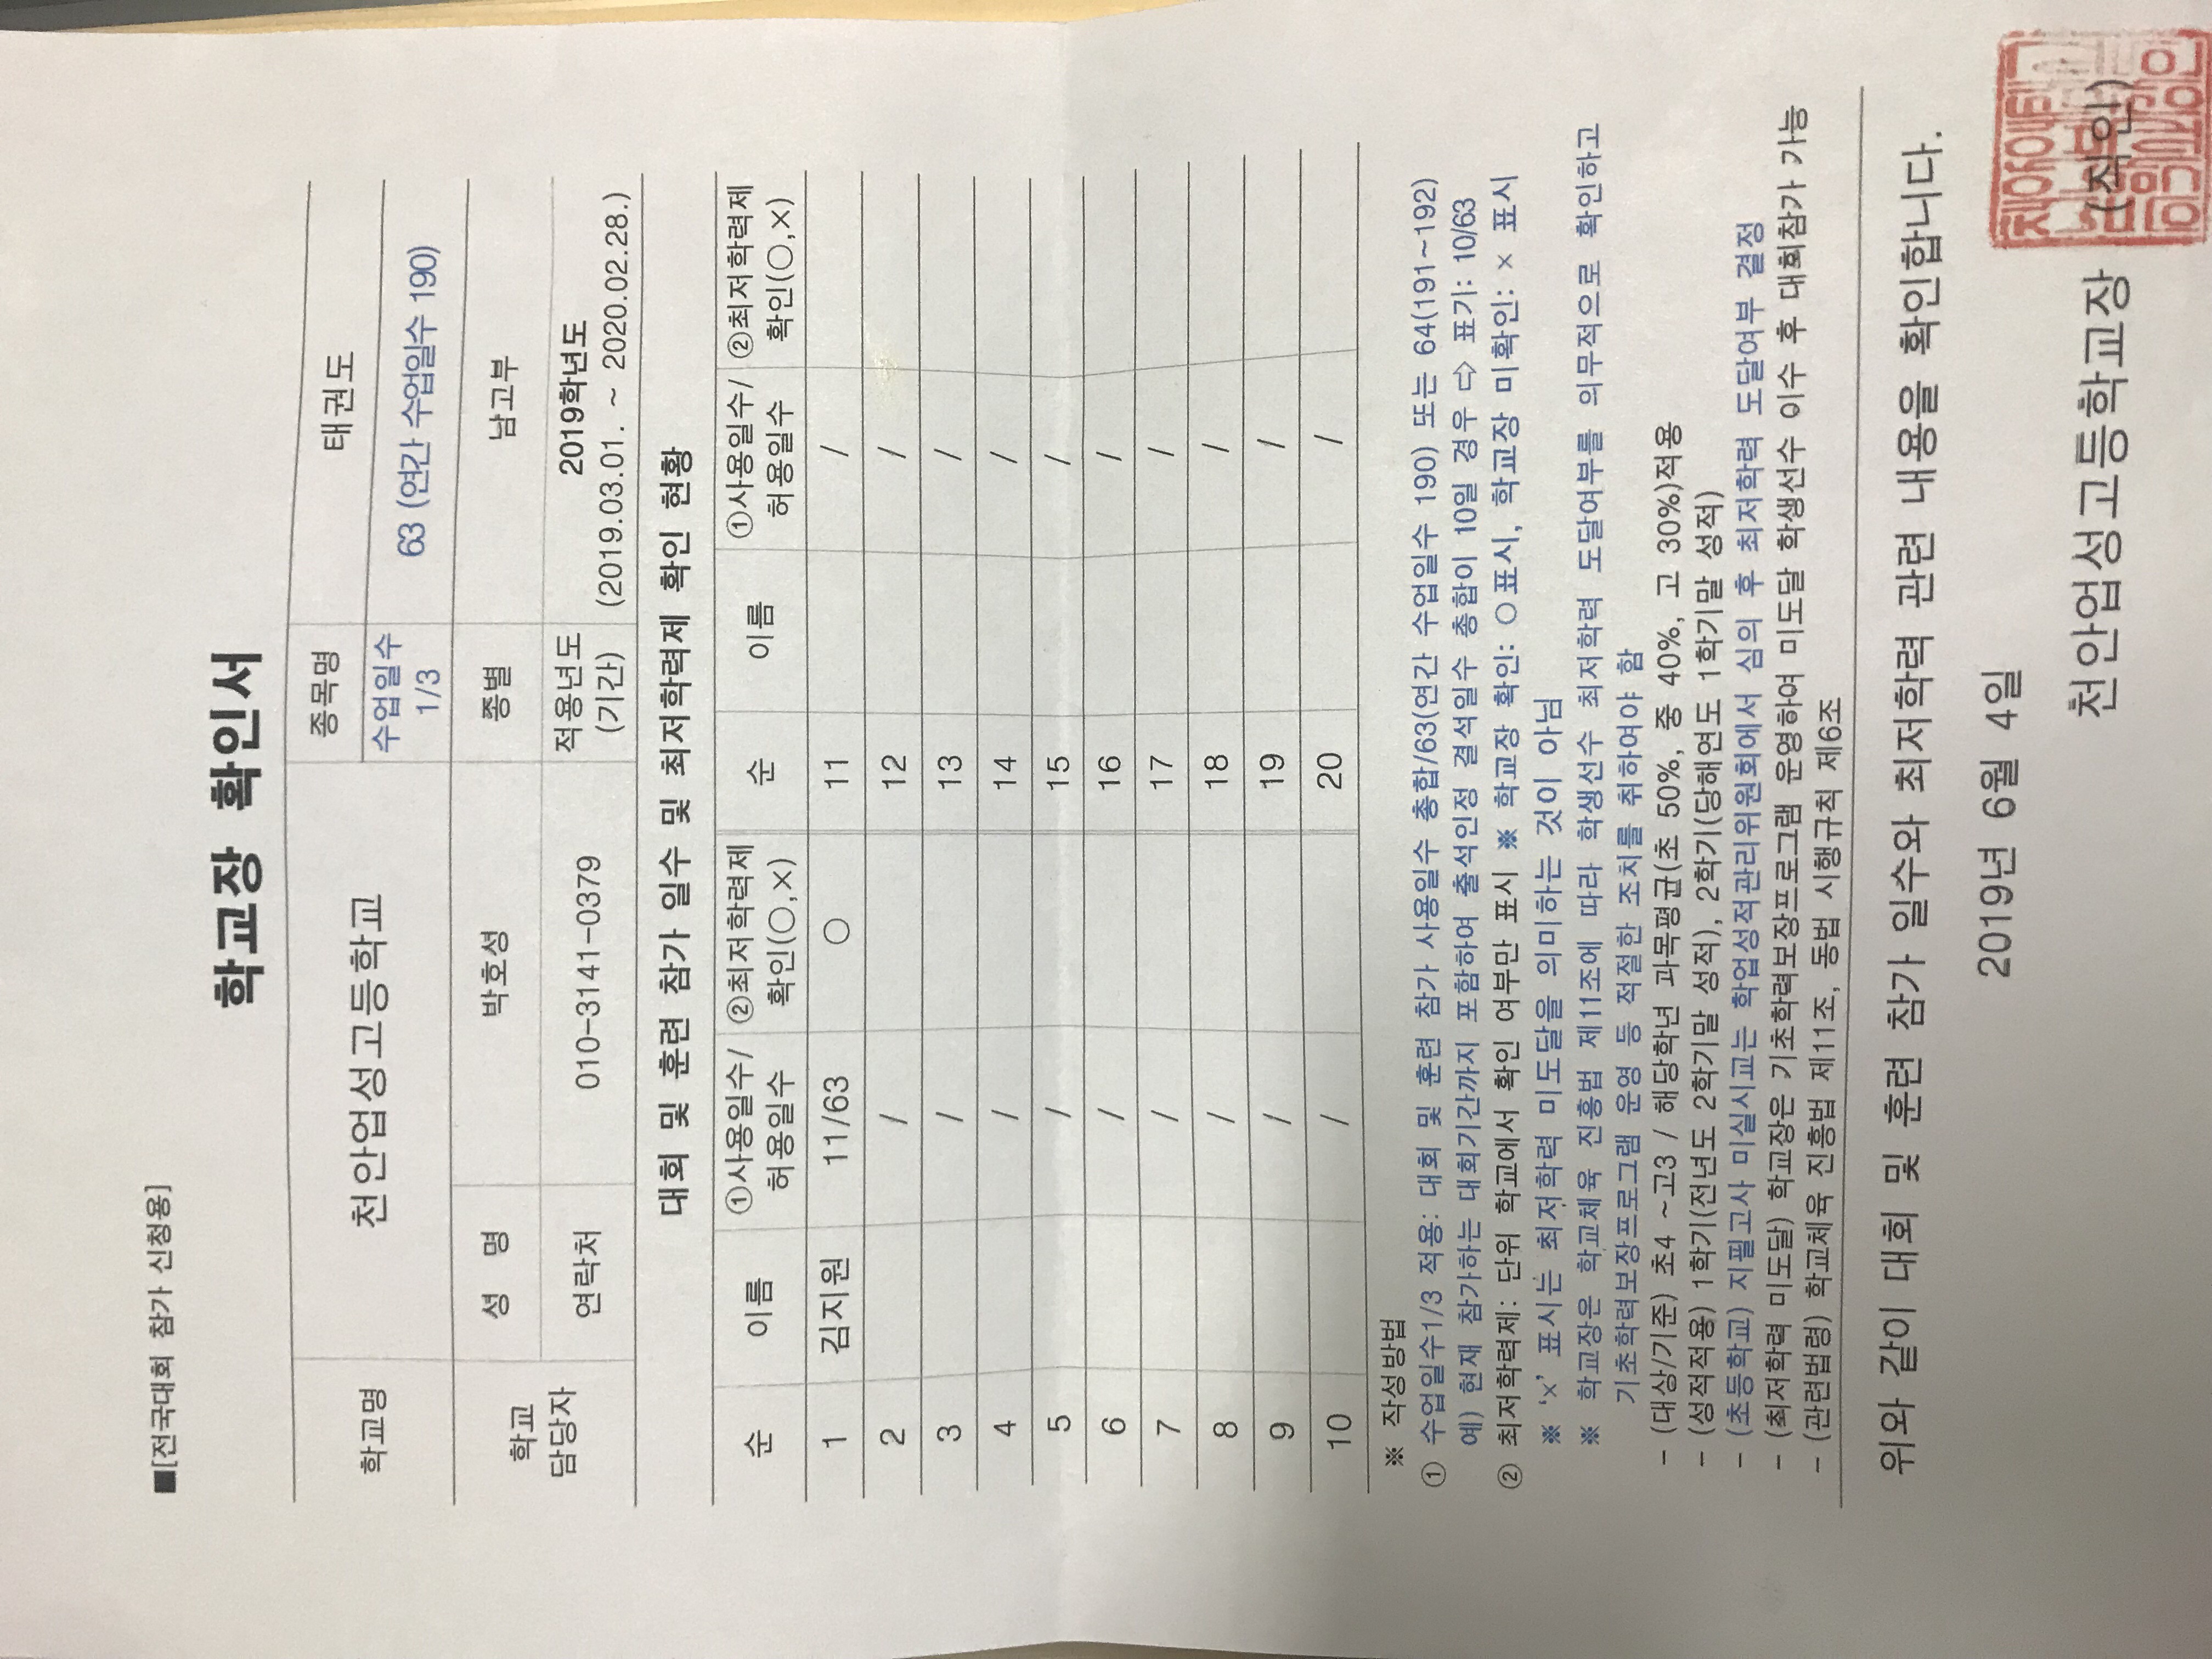 ■[전국대회 참가 신청용]
학교장 확인서
학교명 천안업성고등학교 종목명 태권도
수업일수 1/3 63 (연간 수업일수 190)
학교 담당자 성 명 박호성 종별 남고부
연락처 010-3141-0379 적용년도 (기간) 2019학년도
(2019.03.01. ~ 2020.02.28.)
대회 및 훈련 참가 일수 및 최저학력제 확인 현황
순 이름 ①사용일수/ 허용일수 ②최저학력제 확인(○,×) 순 이름 ①사용일수/ 허용일수 ②최저학력제 확인(○,×)
1 김지원 11/63 ○ 11 /
2 / 12 /
3 / 13 /
4 / 14 /
5 / 15 /
6 / 16 /
7 / 17 /
8 / 18 /
9 / 19 /
10 / 20 /
※ 작성방법
① 수업일수1/3 적용: 대회 및 훈련 참가 사용일수 총합/63(연간 수업일수 190) 또는 64(191~192)
예) 현재 참가하는 대회기간까지 포함하여 출석인정 결석일수 총합이 10일 경우 ⇨ 표기: 10/63
② 최저학력제: 단위 학교에서 확인 여부만 표시 ※ 학교장 확인: ○표시, 학교장 미확인: × 표시
※ '×' 표시는 최저학력 미도달을 의미하는 것이 아님
※ 학교장은 학교체육 진흥법 제11조에 따라 학생선수 최저학력 도달여부를 의무적으로 확인하고
기초학력보장프로그램 운영 등 적절한 조치를 취하여야 함
- (대상/기준) 초4 ~고3 / 해당학년 과목평균(초 50%, 중 40%, 고 30%)적용
- (성적적용) 1학기(전년도 2학기말 성적), 2학기(당해연도 1학기말 성적)
- (초등학교) 지필고사 미실시교는 학업성적관리위원회에서 심의 후 최저학력 도달여부 결정
- (최저학력 미도달) 학교장은 기초학력보장프로그램 운영하여 미도달 학생선수 이수 후 대회참가 가능
- (관련법령) 학교체육 진흥법 제11조, 동법 시행규칙 제6조
위와 같이 대회 및 훈련 참가 일수와 최저학력 관련 내용을 확인합니다.
2019년 6월 4일
천안업성고등학교장 (직인)